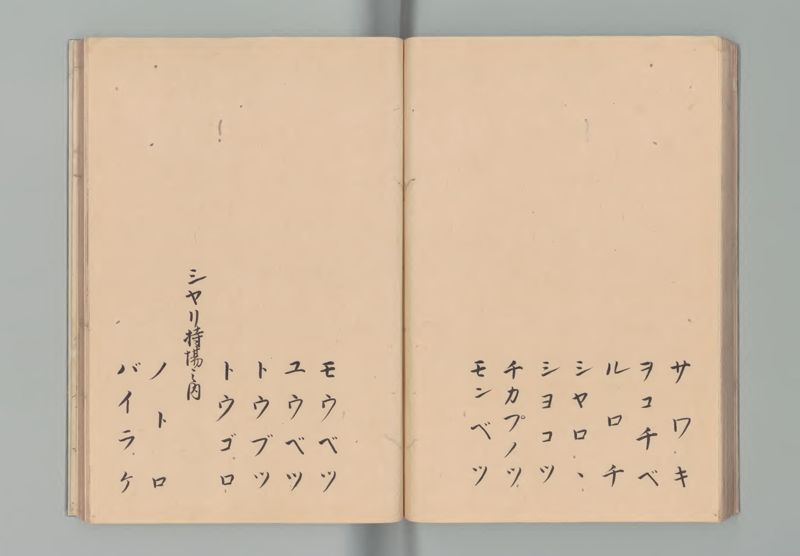 サワキ
ヲコチベ
ルロチ
シヤロヽ
シヨコツ
チカプノツ
モンベツ
モウベツ
ユウベツ
トウブツ
トウゴロ
シヤリ持場之内
ノトロ
バイラケ